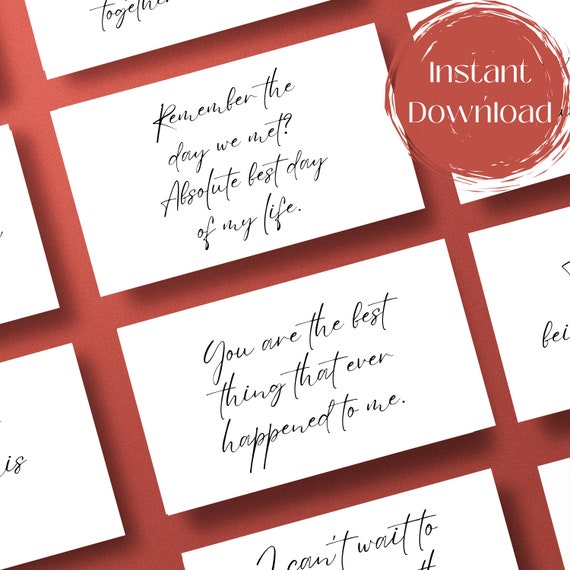 together
Instant
Download
Remember the
day we met?
Absolute best day
of my life.
You are the best
thing that ever
happened to me.
I can't wait to